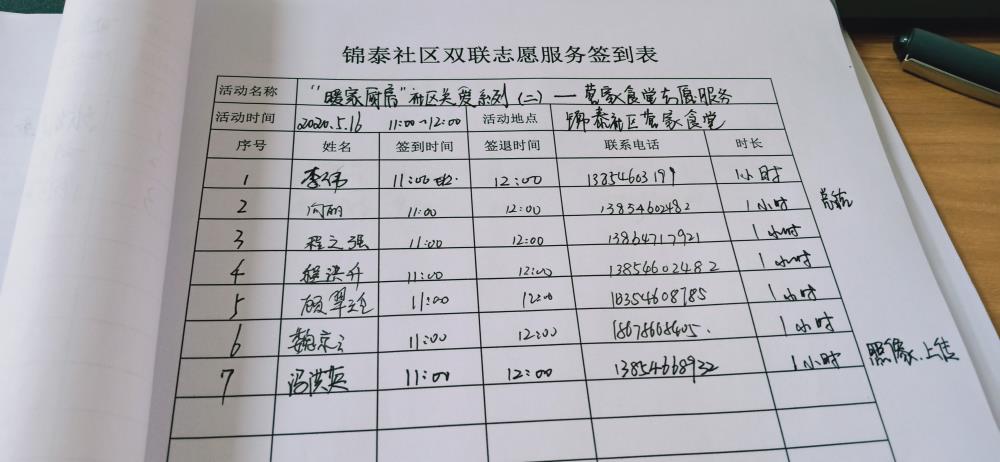 锦泰社区双联志愿服务签到表
活动名称 “暖家厨房”社区关爱系列(二)—营家食堂志愿服务
活动时间 2020.5.16 11:00~12:00 活动地点 锦泰社区营家食堂
序号 姓名 签到时间 签退时间 联系电话 时长
1 李伟 11:00 12:00 13854603199 1小时
2 向丽 11:00 12:00 13854602482 1小时
3 程之强 11:00 12:00 13864717921 1小时
4 洪升 11:00 12:00 13854602482 1小时
5 顾翠 11:00 12:00 18354608785 1小时
6 魏京云 11:00 12:00 18678668405. 1小时
7 冯洪英 11:00 12:00 13854668932 1小时 照像、上传